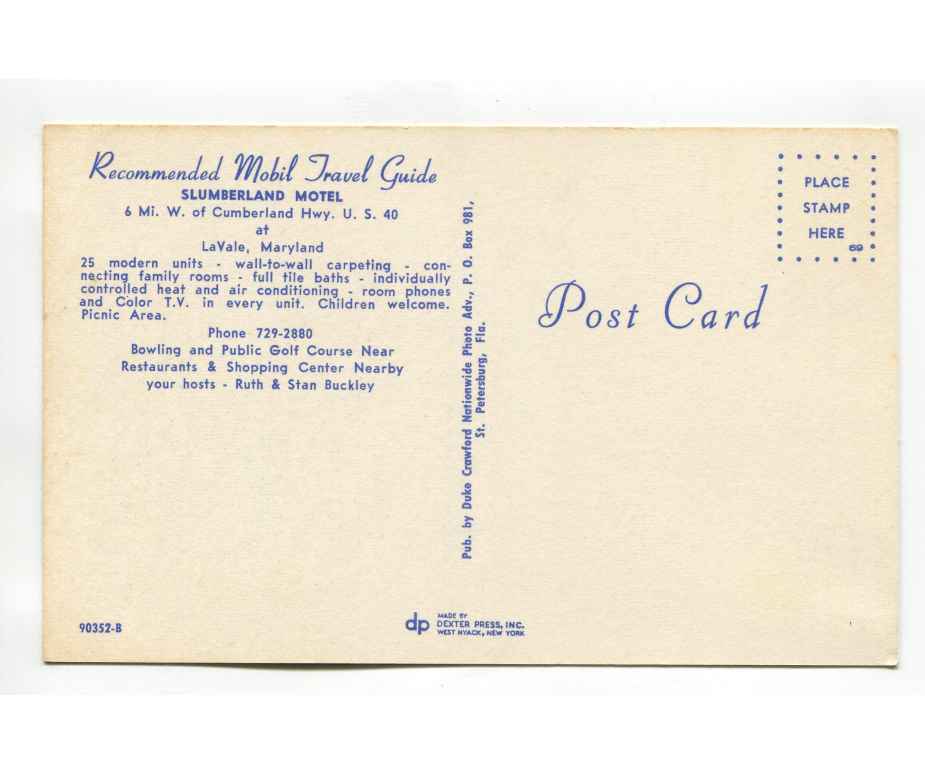 Recommended Mobil Travel Guide
SLUMBERLAND MOTEL
6 Mi. W. of Cumberland Hwy. U. S. 40
at
LaVale, Maryland
25 modern units - wall-to-wall carpeting - con-
necting family rooms - full tile baths - individually
controlled heat and air conditioning - room phones
and Color T.V. in every unit. Children welcome.
Picnic Area.
Phone 729-2880
Bowling and Public Golf Course Near
Restaurants & Shopping Center Nearby
your hosts - Ruth & Stan Buckley
90352-B
Pub. by Duke Crawford Nationwide Photo Adv., P. O. Box 981,
St. Petersburg, Fla.
dp
MADE BY
DEXTER PRESS, INC.
WEST NYACK, NEW YORK
Post Card
PLACE
STAMP
HERE
69